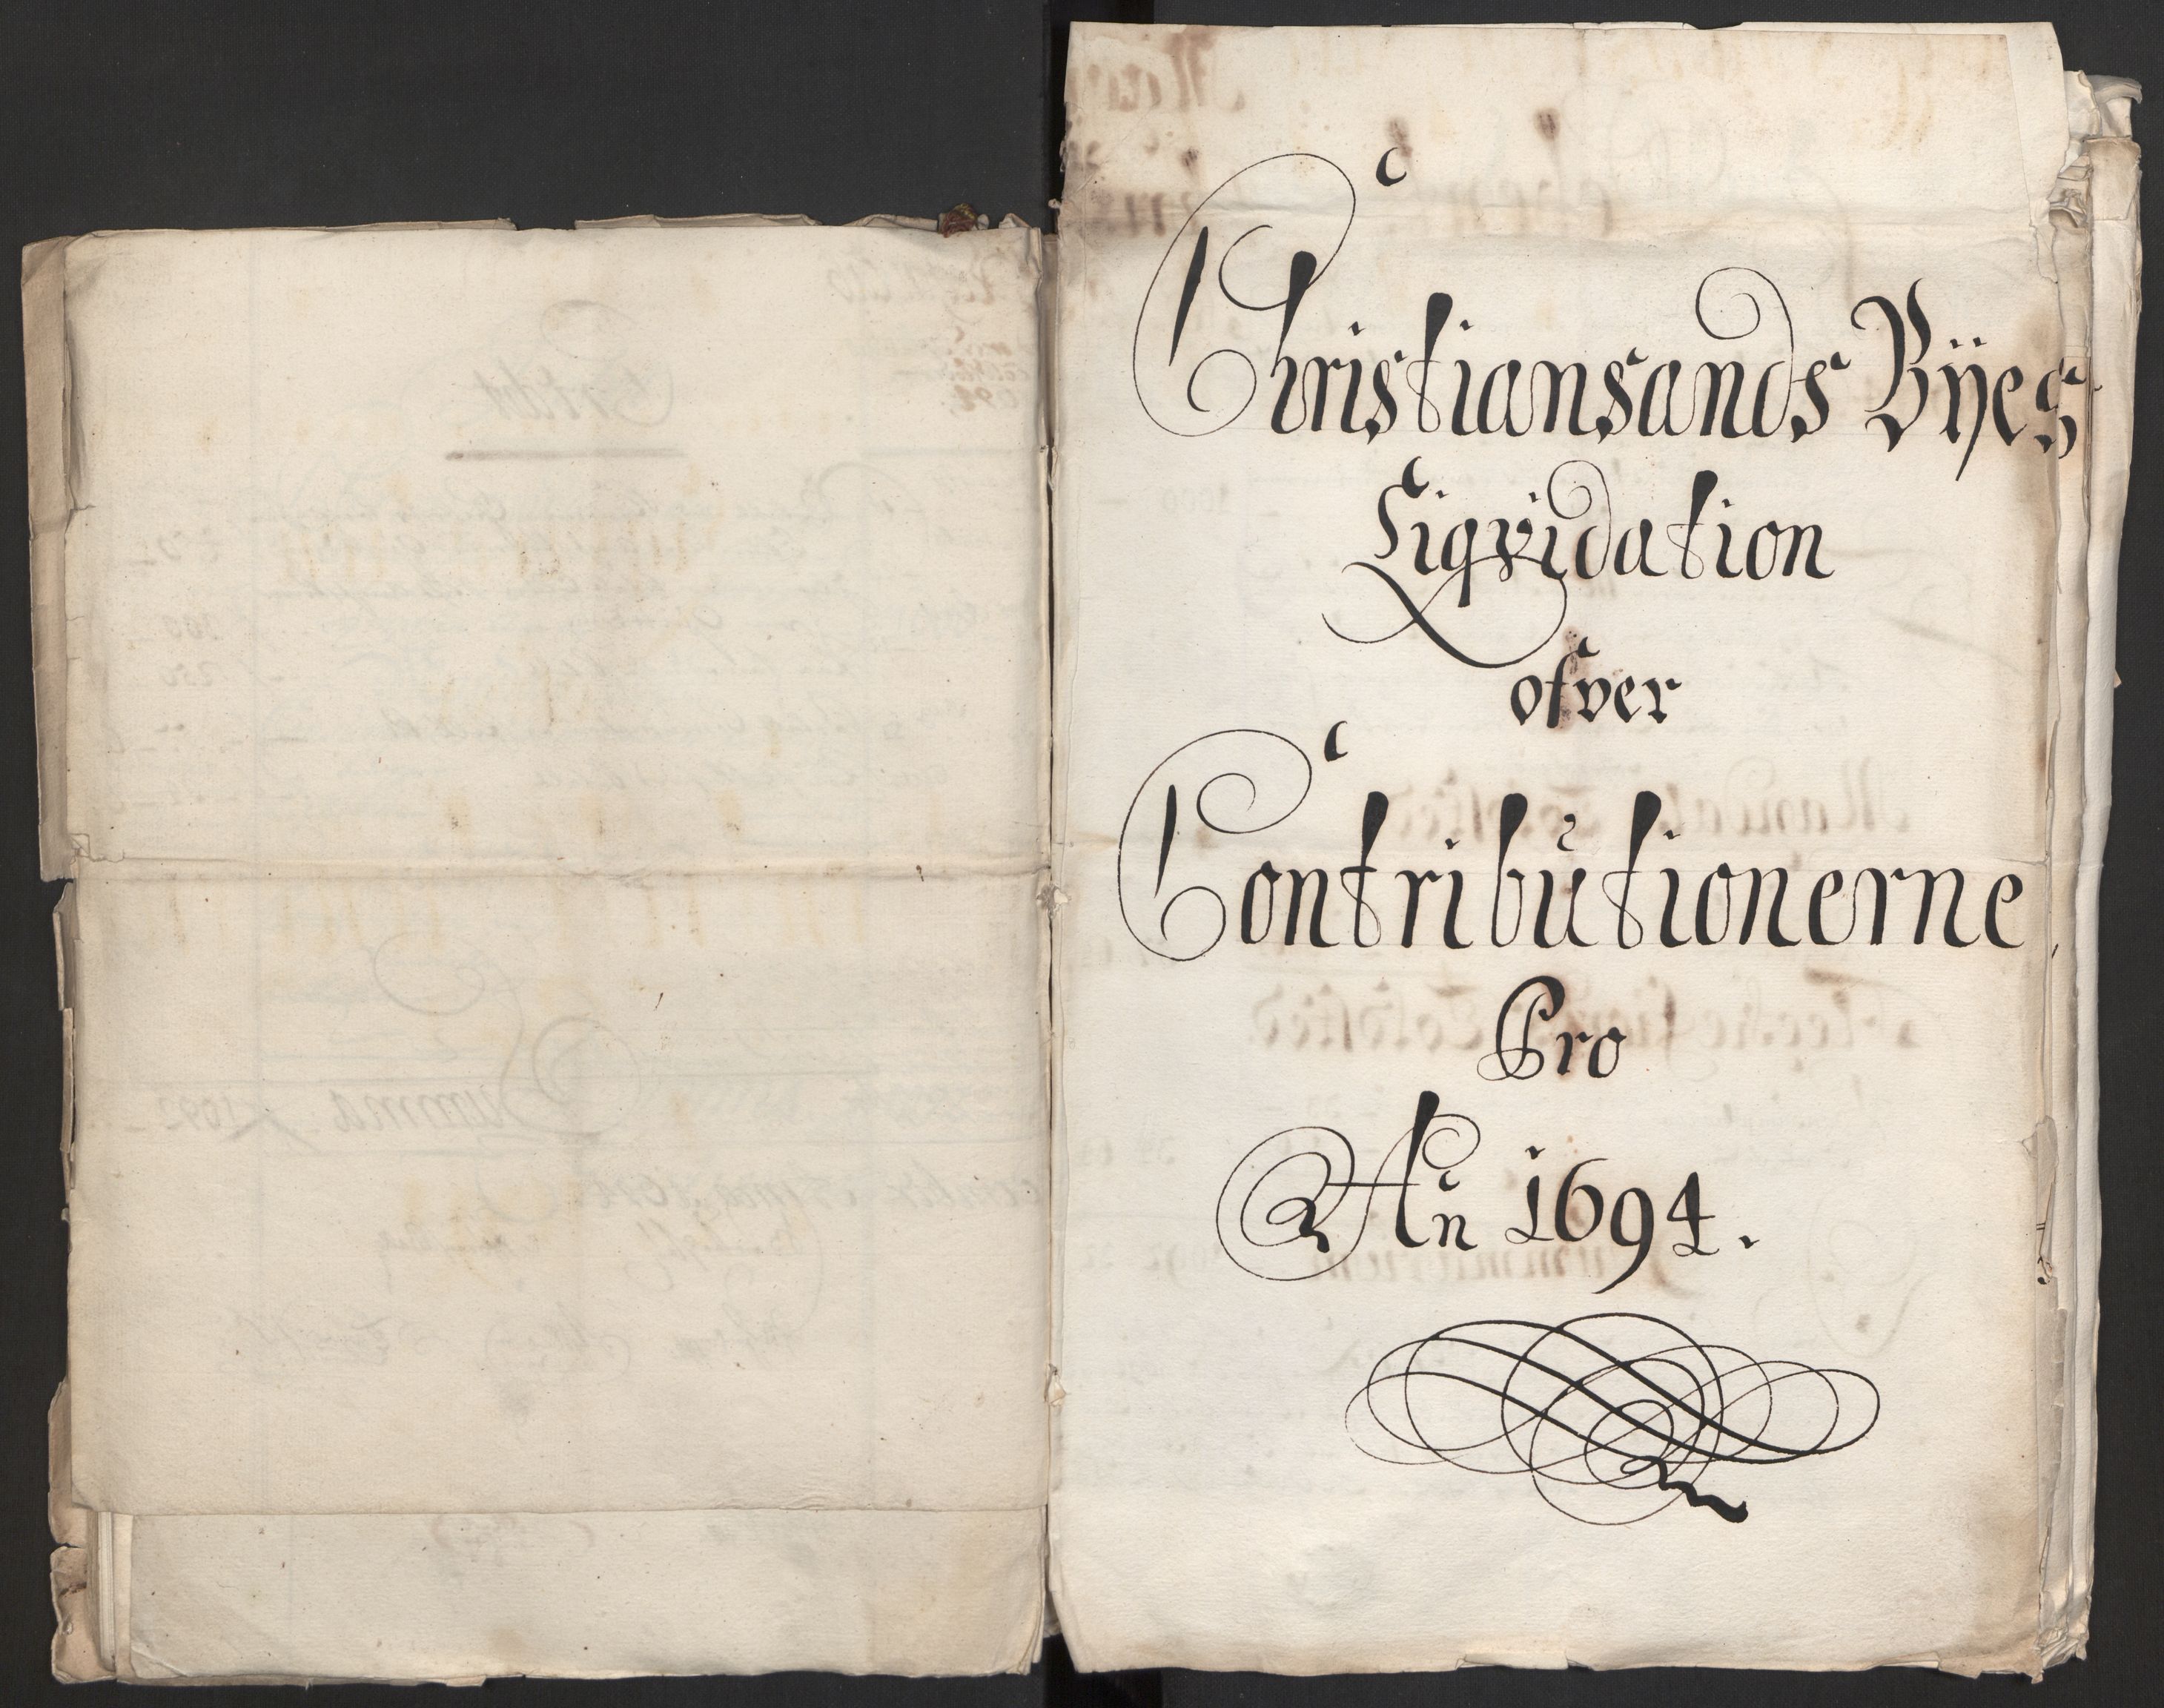 Christiansands Bÿes
Liqvidation
ofver
Contribŭtionerne
Pro
An̆ 1694.